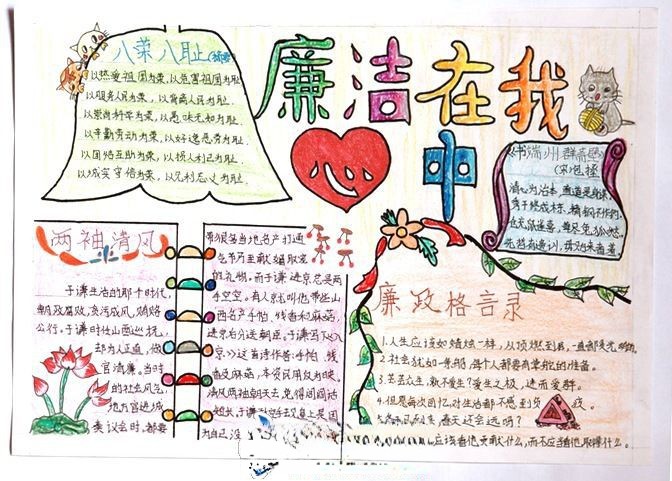 八荣八耻
以热爱祖国为荣,以危害祖国为耻
以服务人民为荣,以背离人民为耻
以崇尚科学为荣,以愚昧无知为耻
以辛勤劳动为荣,以好逸恶劳为耻
以团结互助为荣,以损人利己为耻
以诚实守信为荣,以见利忘义为耻
廉洁在我
心中
书端州郡斋壁
(宋)包拯
清心为治本,直道是身谋
秀干终成栋,精钢不作钩
两袖清风
于谦生活的那个时代,
朝政腐败,贪污成风,贿赂
公行。于谦时任山西巡抚,
却为人正直,做
官清廉。当时
的社会风气,
地方官进城
奏议会时,都要
带很多当地名产打通
的礼物。而于谦进京总是两
手空空。有人
进京后分送朝臣。于谦写下《入
京》这首诗作答:手帕、线
香及麻菇,本资民用反为殃。
清风两袖朝天去,免得闾阎话
短长。
廉政格言录
1.人生应该如蜡烛一样,从顶燃到底,一直都是光明的。
2.社会犹如一条船,每个人都要有掌舵的准备。
3.芸芸众生,孰不爱生?爱生之极,进而爱群。
4.但愿每次回忆,对生活都不感到负疚。
春天还会远吗?
应该看他贡献什么,而不应当看他取得什么。